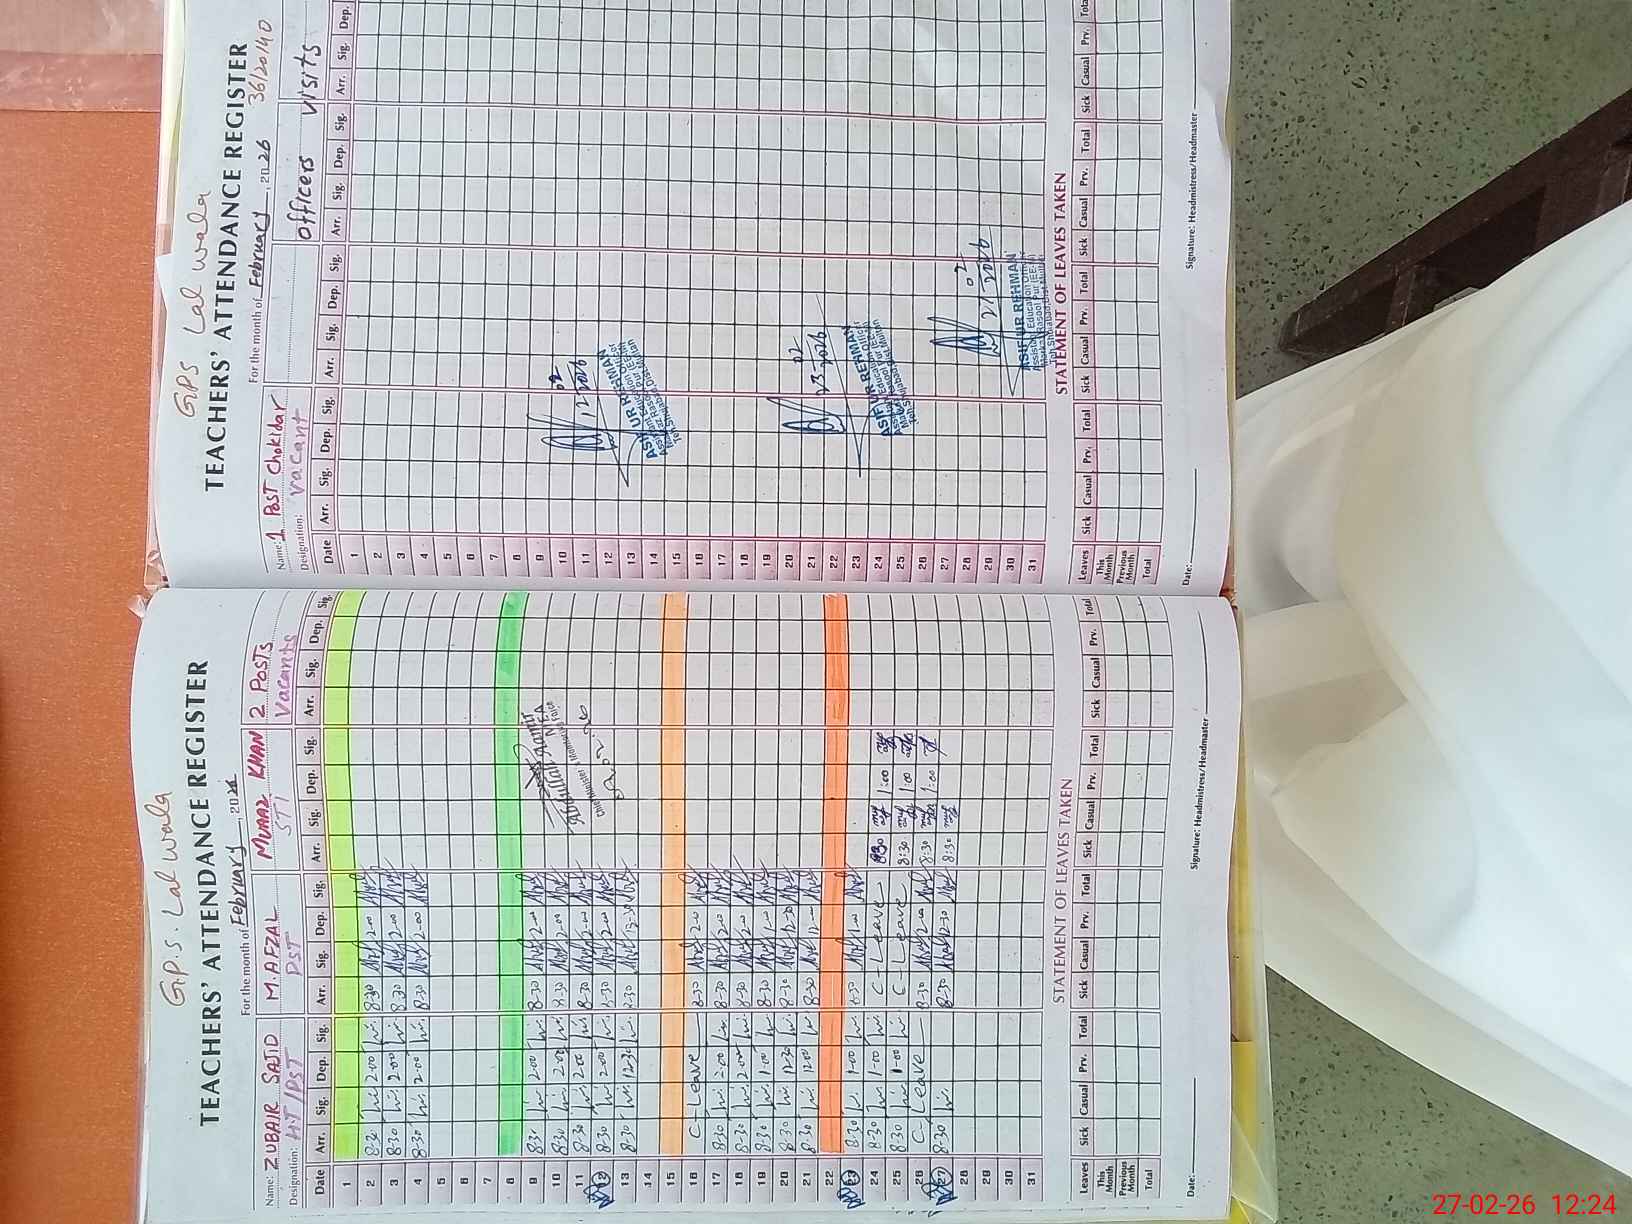 G.P.S. Lal wala
TEACHERS' ATTENDANCE REGISTER
For the month of February, 2026
Name: ZUBAIR SAJID M.AFZAL MUAAZ KHAN 2 POSTS
Designation: HT/PST PST STI Vacants
Date Arr. Sig. Dep. Sig. Arr. Sig. Dep. Sig. Arr. Sig. Dep. Sig. Arr. Sig. Dep. Sig.
1
2 8-30 2-00 8-30 2-00
3 8-30 2-00 8-30 2-00
4 8-30 2-00 8-30 2-00
5
6
7
8
9 8-30 2-00 8-30 2-00
10 8-30 2-00 8-30 2-00
11 8-30 2-00 8-30 2-00
12 8-30 2-00 8-30 2-00
13 8-30 12-30 8-30 12-30
14
15
16 C-Leave 8-30 2-00
17 8-30 2-00 8-30 2-00
18 8-30 2-00 8-30 2-00
19 8-30 1-00 8-30 1-00
20 8-30 12-30 8-30 12-30
21 8-30 12-00 8-30 12-00
22
23 8-30 1-00 8-30 1-00
24 8-30 1-00 C-Leave 8:30 1:00
25 8-30 1-00 C-Leave 8:30 1:00
26 C-Leave 8-30 2-00 8:30 1:00
27 8-30 8-30 12-30 8:30
28
29
30
31
Abdullah Aamir
MEA
STATEMENT OF LEAVES TAKEN
Leaves Sick Casual Prv. Total Sick Casual Prv. Total Sick Casual Prv. Total Sick Casual Prv. Total
This Month
Previous Month
Total
Date: Signature: Headmistress/Headmaster
GPS Lal wala
TEACHERS' ATTENDANCE REGISTER
For the month of February, 2026 36/20/40
Name: 1 Post Chokidar
Designation: vacant officers visits
Date Arr. Sig. Dep. Sig. Arr. Sig. Dep. Sig. Arr. Sig. Dep. Sig. Arr. Sig. Dep.
1
2
3
4
5
6
7
8
9
10
11
12
13
14
15
16
17
18
19
20
21
22
23
24
25
26
27
28
29
30
31
12-02-2026
ASIF UR REHMAN
Assistant Education Officer
23-02-2026
ASIF UR REHMAN
Assistant Education Officer
27-02-2026
ASIF UR REHMAN
Assistant Education Officer
STATEMENT OF LEAVES TAKEN
Leaves Sick Casual Prv. Total Sick Casual Prv. Total Sick Casual Prv. Total Sick Casual Prv. Total
This Month
Previous Month
Total
Date: Signature: Headmistress/Headmaster
27-02-26 12:24